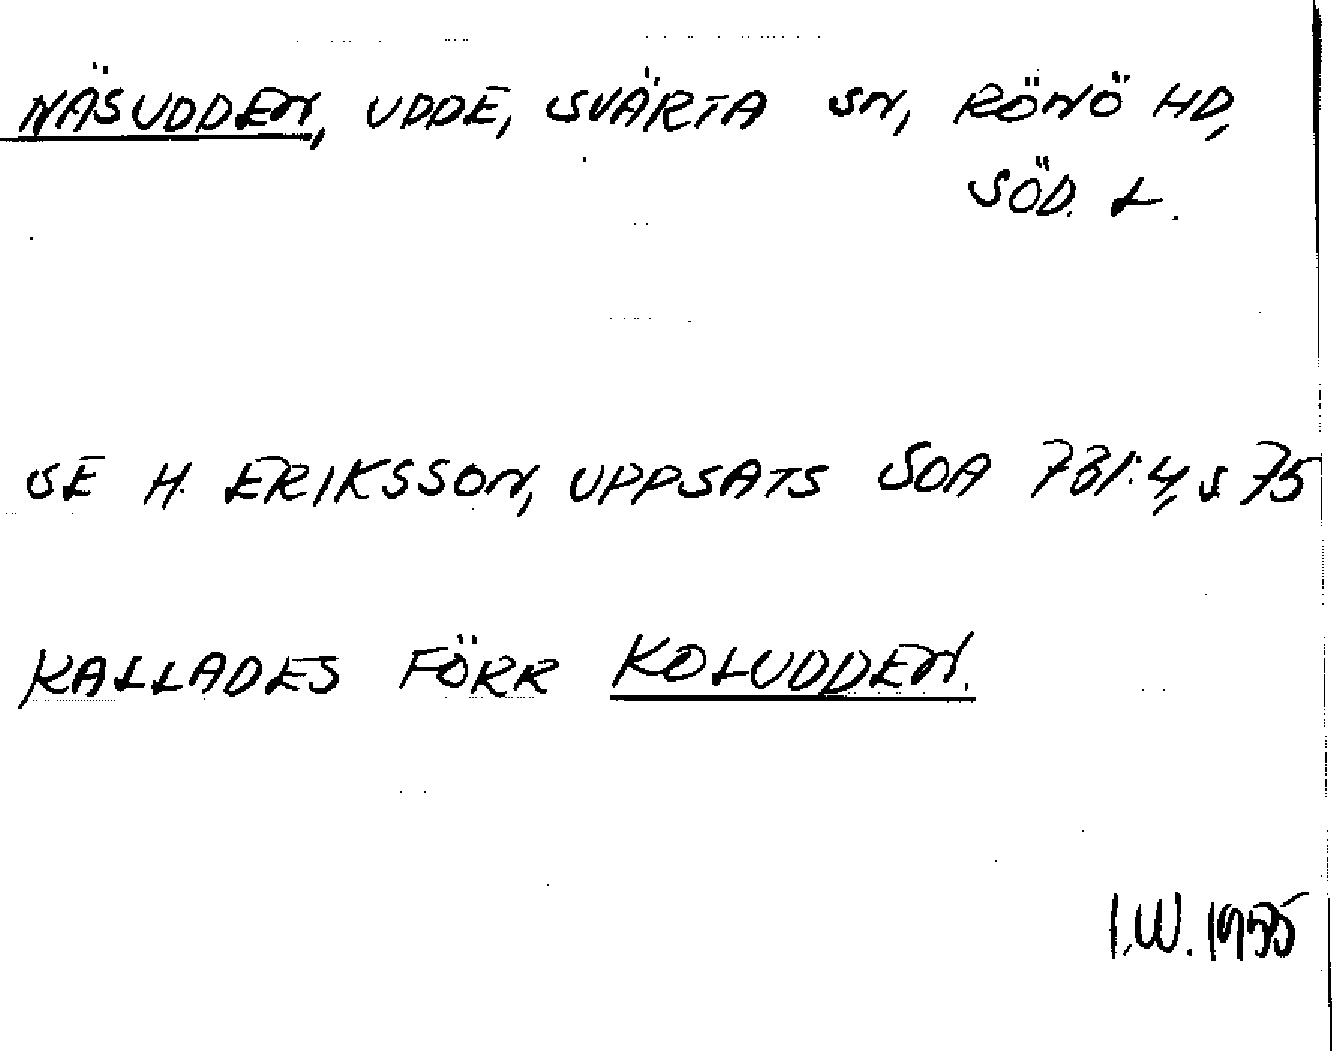 NÄSUDDEN, UDDE, SVÄRTA SN, RÖNÖ HD,
SÖD. L.
SE H. ERIKSSON, UPPSATS SOA 731:4, S 75
KALLADES FÖRR KOLUDDEN.
I.W. 1955